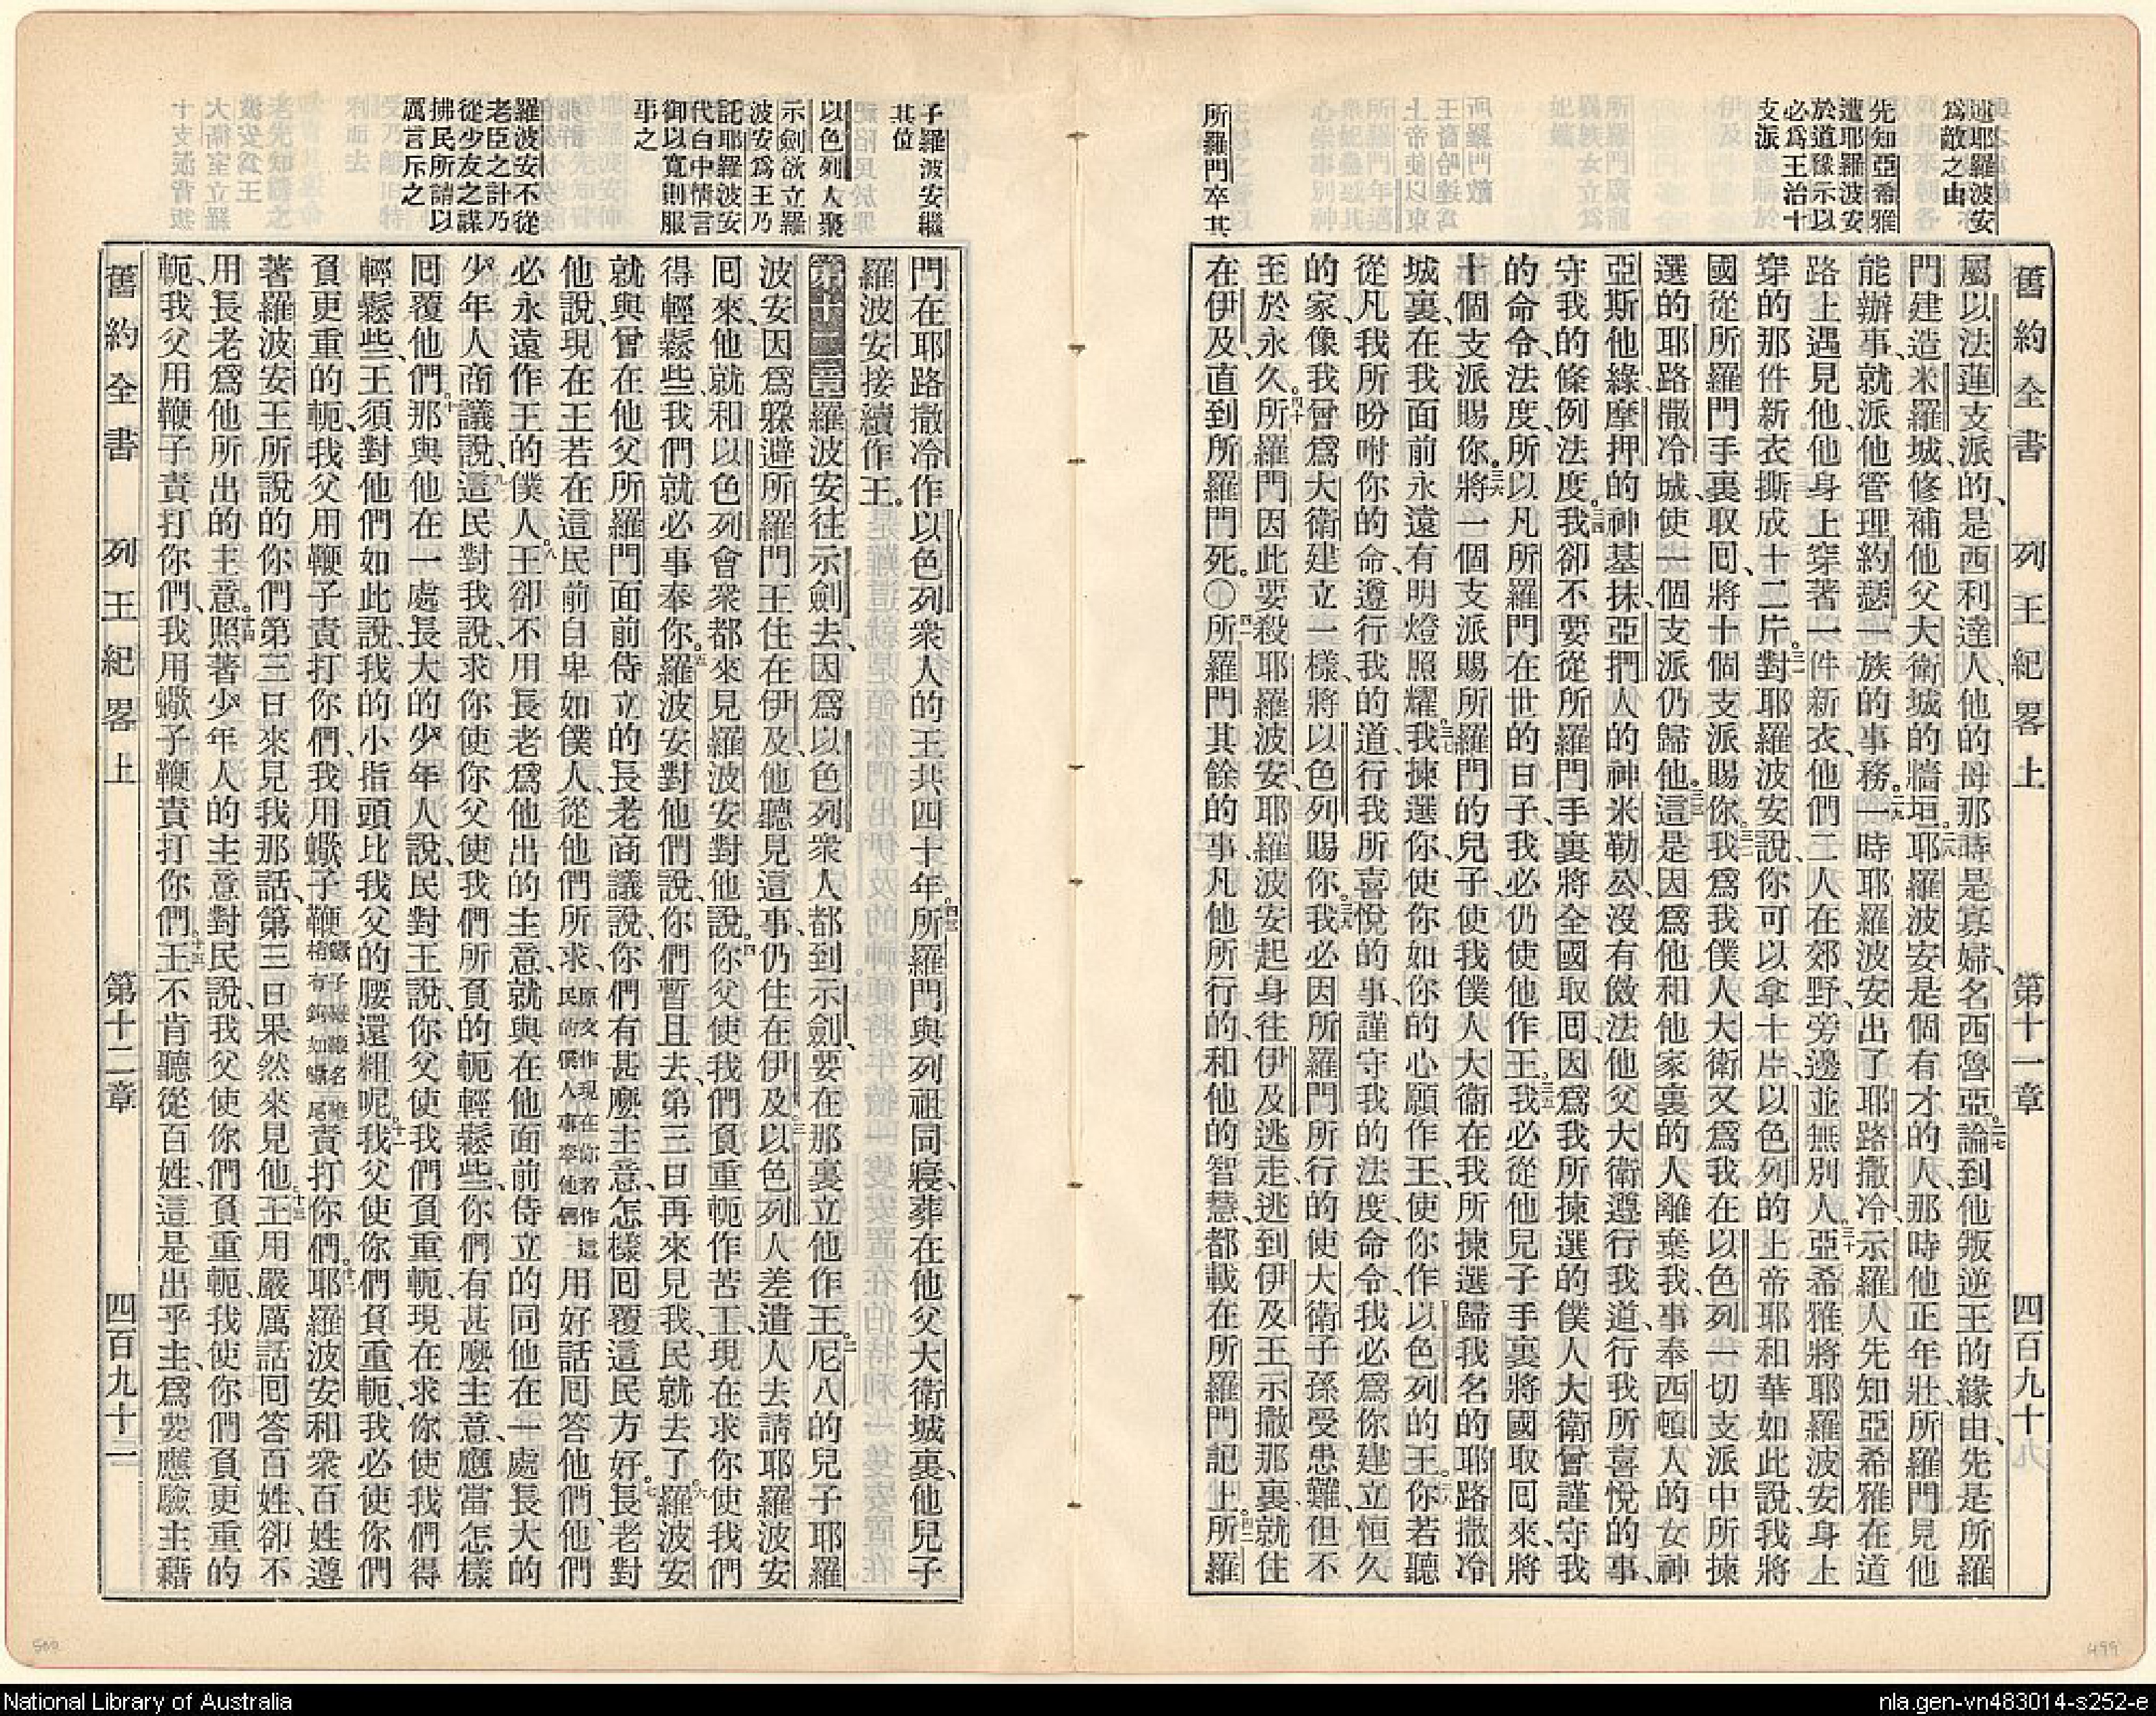 述耶羅波安
為敵之由
先知亞希雅
遭耶羅波安
於道豫示以
必為王治十
支派
所羅門卒其
舊約全書 列王紀畧上 第十一章 四百九十九
屬以法蓮支派的、是西利達人、他的母那時是寡婦、名西魯亞。二七論到他叛逆王的緣由、先是所羅
門建造米羅城、修補他父大衛城的牆垣。二八耶羅波安是個有才的人、那時他正年壯、所羅門見他
能辦事、就派他管理約瑟一族的事務。二九一時耶羅波安出了耶路撒冷、示羅人先知亞希雅在道
路上遇見他、他身上穿著一件新衣、他們二人在郊野、旁邊並無別人。三十亞希雅將耶羅波安身上
穿的那件新衣撕成十二片。三一對耶羅波安說、你可以拿十片、以色列的上帝耶和華如此說、我將
國從所羅門手裏取回、將十個支派賜你。三二我為我僕人大衛又為我在以色列一切支派中所揀
選的耶路撒冷城、使一個支派仍歸他。三三這是因為他和他家裏的人離棄我、事奉西頓人的女神
亞斯他綠、摩押的神基抹、亞捫人的神米勒公、沒有傚法他父大衛遵行我道、行我所喜悅的事、
守我的條例法度。三四我卻不要從所羅門手裏將全國取回、因為我所揀選的僕人大衛曾謹守我
的命令法度、所以凡所羅門在世的日子、我必仍使他作王。三五我必從他兒子手裏將國取回來、將
十個支派賜你。三六將一個支派賜所羅門的兒子、使我僕人大衛在我所揀選歸我名的耶路撒冷
城裏、在我面前永遠有明燈照耀。三七我揀選你、使你如你的心願作王、使你作以色列的王。三八你若聽
從凡我所吩咐你的命、遵行我的道、行我所喜悅的事、謹守我的法度、命令、我必為你建立恒久
的家、像我曾為大衛建立一樣、將以色列賜你。三九我必因所羅門所行的使大衛子孫受患難、但不
至於永久。四十所羅門因此要殺耶羅波安、耶羅波安起身往伊及逃走、逃到伊及王示撒那裏、就住
在伊及、直到所羅門死。〇四一所羅門其餘的事、凡他所行的、和他的智慧、都載在所羅門記上。四二所羅
子羅波安繼
其位
以色列人聚
示劍欲立羅
波安為王乃
託耶羅波安
代白中情言
御以寬則服
事之
羅波安不從
老臣之計乃
從少友之謀
拂民所請以
厲言斥之
門在耶路撒冷作以色列衆人的王共四十年。四三所羅門與列祖同寢、葬在他父大衛城裏、他兒子
羅波安接續作王。
第十二章 羅波安往示劍去、因為以色列衆人都到示劍、要在那裏立他作王。二尼八的兒子耶羅
波安、因為躱避所羅門王住在伊及、他聽見這事、仍住在伊及。三以色列人差遣人去請耶羅波安
回來、他就和以色列會衆都來見羅波安對他說。四你父使我們負重軛作苦工、現在求你使我們
得輕鬆些、我們就必事奉你。五羅波安對他們說、你們暫且去、第三日再來見我、民就去了。六羅波安
就與曾在他父所羅門面前侍立的長老商議說、你們有甚麼主意、怎樣回覆這民方好。七長老對
他說、現在王若在這民前自卑如僕人、從他們所求、原文作現在你若作這民的僕人事奉他們用好話回答他們、他們
必永遠作王的僕人。八王卻不用長老為他出的主意、就與在他面前侍立的同他在一處長大的
少年人商議說。九這民對我說、求你使你父使我們所負的軛輕鬆些、你們有甚麼主意、應當怎樣
回覆他們。十那與他在一處長大的少年人說、民對王說、你父使我們負重軛、現在求你使我們得
輕鬆些、王須對他們如此說、我的小指頭比我父的腰還粗呢。十一我父使你們負重軛、我必使你們
負更重的軛、我父用鞭子責打你們、我用蠍子鞭責打你們。十二耶羅波安和衆百姓遵
著羅波安王所說的你們第三日來見我那話、第三日果然來見他。十三王用嚴厲話回答百姓、卻不
用長老為他所出的主意。十四照著少年人的主意對民說、我父使你們負重軛、我使你們負更重的
軛、我父用鞭子責打你們、我用蠍子鞭責打你們。十五王不肯聽從百姓、這是出乎主、為要應驗主藉
舊約全書 列王紀畧上 第十二章 四百九十二
500
499
National Library of Australia
nla.gen-vn483014-s252-e